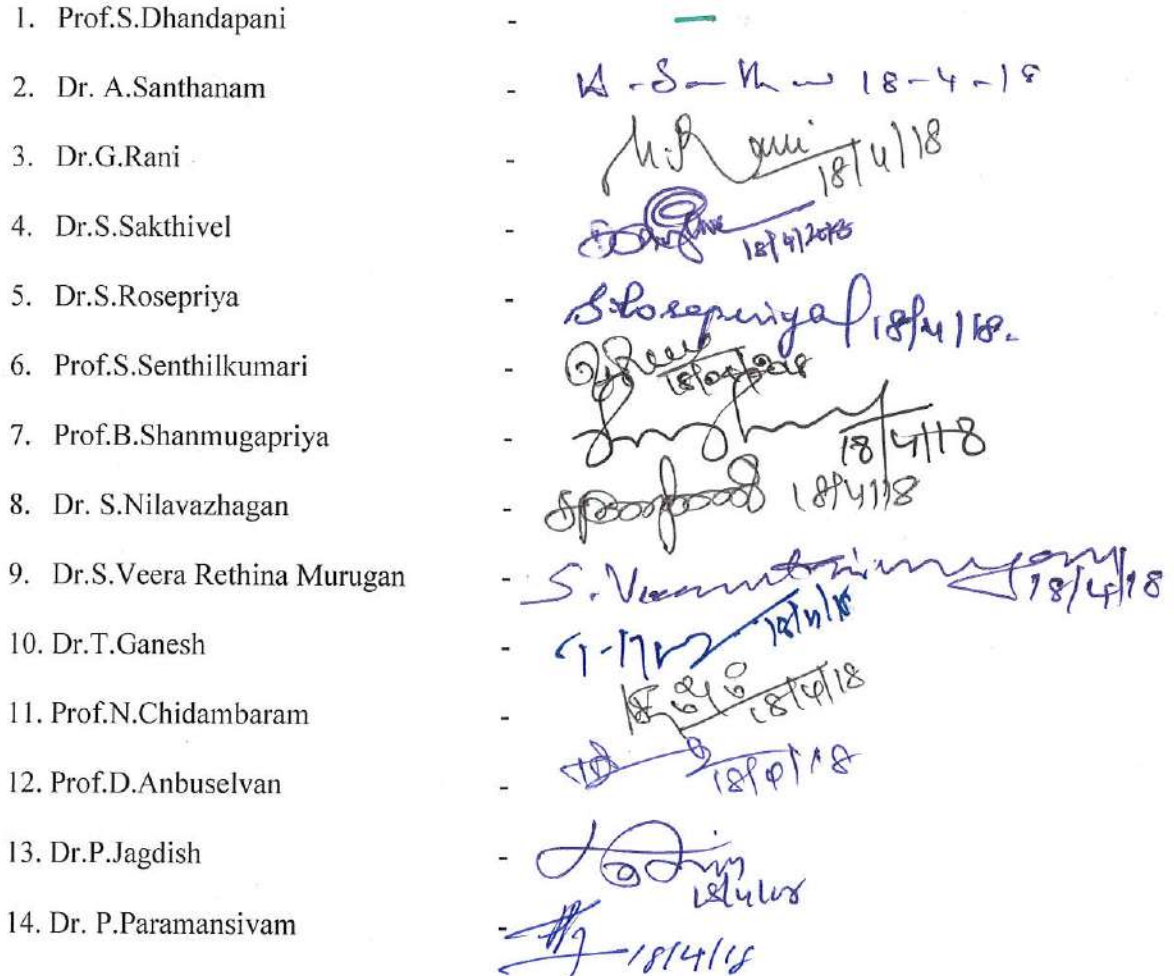 1. Prof.S.Dhandapani -
2. Dr. A.Santhanam - 18-4-18
3. Dr.G.Rani - 18/4/18
4. Dr.S.Sakthivel - 18/4/2018
5. Dr.S.Rosepriya - S.Rosepriya 18/4/18.
6. Prof.S.Senthilkumari - 18/04/2018
7. Prof.B.Shanmugapriya - 18/4/18
8. Dr. S.Nilavazhagan - 18/4/18
9. Dr.S.Veera Rethina Murugan - 18/4/18
10. Dr.T.Ganesh - 18/4/18
11. Prof.N.Chidambaram - 18/4/18
12. Prof.D.Anbuselvan - 18/4/18
13. Dr.P.Jagdish - 18/4/18
14. Dr. P.Paramansivam - 18/4/18